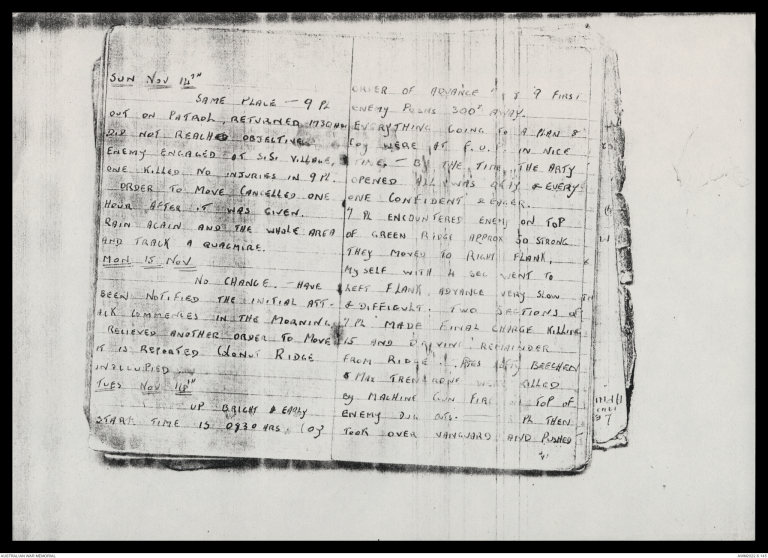 SUN NOV 14TH
SAME PLACE - 9 PL
OUT ON PATROL, RETURNED 1730
DID NOT REACHED OBJECTIVE
ENEMY ENGAGED AT SISI VILLAGE,
ONE KILLED NO INJURIES IN 9 PL.
ORDER TO MOVE CANCELLED ONE
HOUR AFTER IT WAS GIVEN.
RAIN AGAIN AND THE WHOLE AREA
AND TRACK A QUAGMIRE.
MON 15 NOV
NO CHANGE. - HAVE
BEEN NOTIFIED THE INITIAL ATT-
ACK COMMENCES IN THE MORNING.
RELIEVED ANOTHER ORDER TO MOVE
IT IS REPORTED GREEN RIDGE
TUES NOV
UP BRIGHT & EARLY
START TIME IS 0830 HRS. COY
ORDER OF ADVANCE 7 9 FIRST
ENEMY POSNS 300X AWAY.
EVERYTHING GOING TO A PLAN &
COY WERE AT F.U.P. IN NICE
TIME. - BY THE TIME THE ARTY
OPENED ALL WAS & EVERY-
ONE CONFIDENT & EAGER.
7 PL ENCOUNTERED ENEMY ON TOP
OF GREEN RIDGE APPROX 50 STRONG
THEY MOVED TO RIGHT FLANK,
MYSELF WITH 4 SEC WENT TO
LEFT FLANK. ADVANCE VERY SLOW
& DIFFICULT. TWO SECTIONS OF
7 PL MADE FINAL CHARGE KILLING
15 AND DRIVING REMAINDER
FROM RIDGE. BEECHEN
& MAX WERE KILLED
BY MACHINE GUN FIRE ON TOP OF
ENEMY DUG OUTS. PL THEN
TOOK OVER VANGUARD AND PUSHED
AUSTRALIAN WAR MEMORIAL